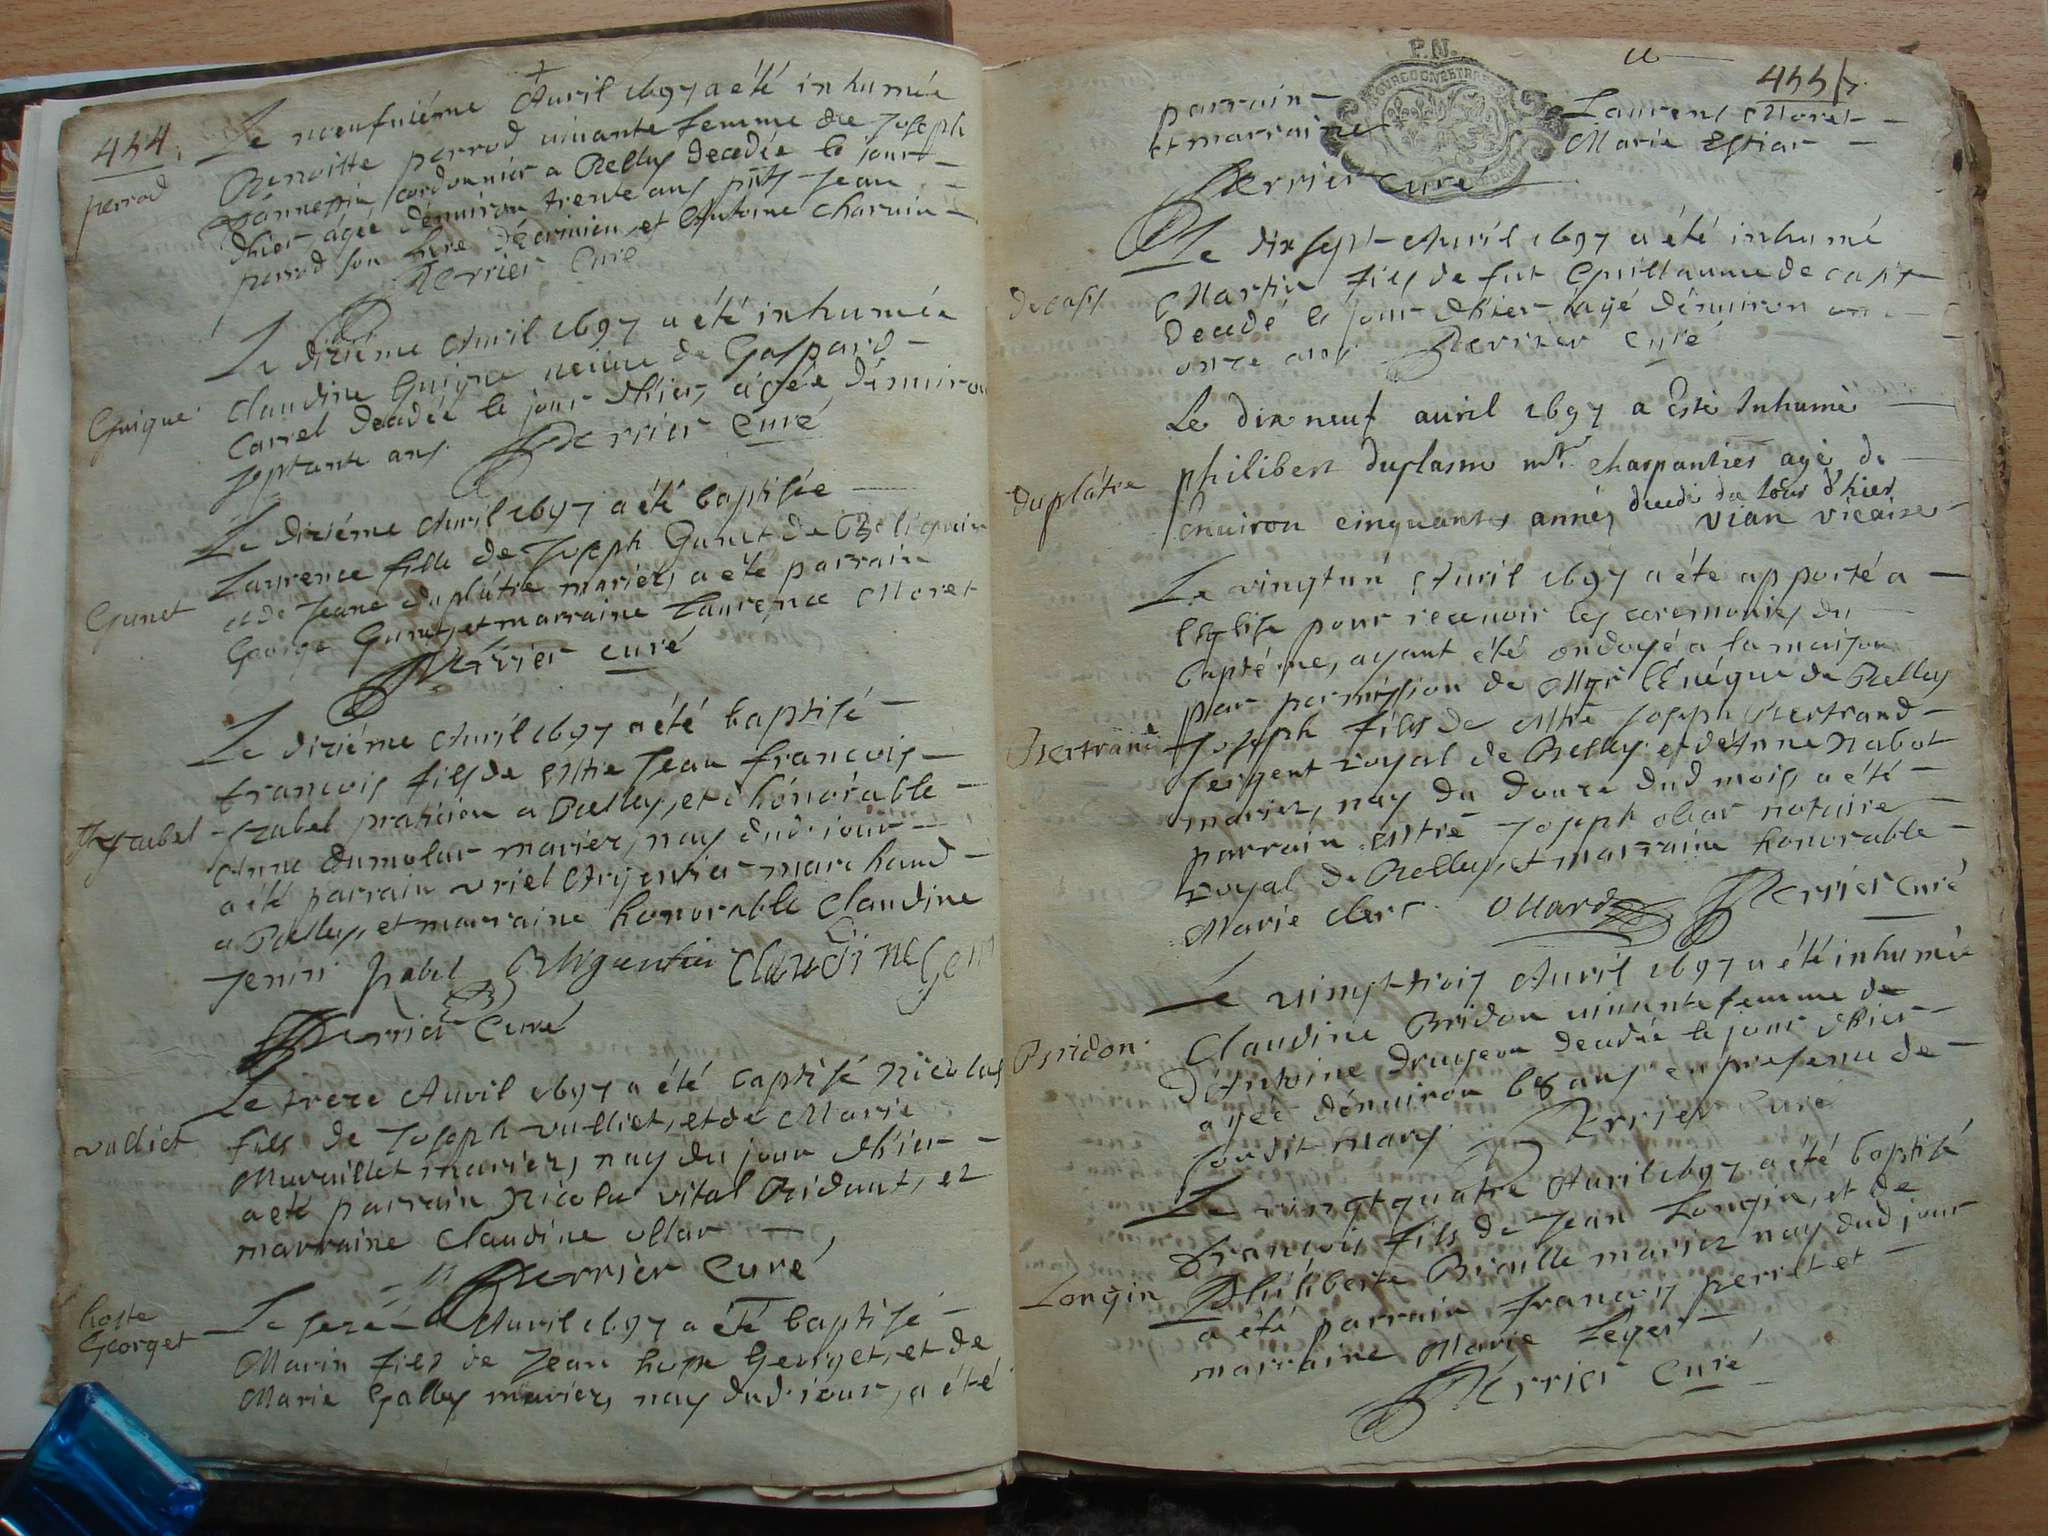 454
Le noeufuiéme Auril 1697 a été inhumée
perrod
Benoitte perrod uiuante femme de Joseph
cordonnier a Belley decedée le jour
dhier agée dénuiron trente ans pnts Jean
perrod son frere et Antoine Charuin
Perrier Curé
Le diziéme Auril 1697 a été inhumée
Guigue
Claudine Guigue ueuue de Gaspard
Carrel decedée le jour dhier, agée dénuiron
septante ans. Perrier Curé
Le diziéme Auril 1697 a été baptisée
Gunet
Laurence fille de Joseph Gunet de
et de Jeane duplâtre mariez, a été parrain
George Gunet, et marraine Laurence Moret
Perrier curé
Le diziéme Auril 1697 a été baptisé
francois fils de Mtre Jean francois
Yzabel praticien a Belley, et dhonorable
Anne dumolar mariez, nay dud. jour
a été parrain uriel Argentier marchand
a Belley, et marraine honorable Claudine
Jenin Izabel Argentier Claudine Genin
Perrier Curé
Le treze Auril 1697 a été baptisé Nicolas
vulliet
fils de Joseph vulliet, et de Marie
mariez, nay du jour dhier
a été parrain Nicolas vital, et
marraine Claudine ollar
Perrier Curé
hoste
Georget
Le seze Auril 1697 a été baptisé
Marin fils de Jean hoste Georget, et de
Marie Gallay mariez, nay dud. jour, a été
455
parrain Laurent Moret
et marraine Marie Estiar
Perrier curé
Le dix sept Auril 1697 a été inhumé
decass
Martin fils de fut Guillaume de cass
decedé le jour dhier agé dénuiron
onze ans Perrier Curé
Le dix neuf auril 1697 a Esté Inhumé
duplâtre
philibert duplastre mtr charpantier agé de
Enuiron cinquantes années decedé du Jour d'hier
vian vicaire
Le vingtun Auril 1697 a été apporté a
l'Eglise pour receuoir les ceremonies du
baptéme, ayant été ondoyé a la maison
par permission de Mgr l'Euéque de Belley
Bertrand
Joseph fils de Mtre Joseph Bertrand
sergent royal de Belley et d'Anne Nabot
mariez, nay du douze dud mois, a été
parrain Mtre Joseph ollar notaire
royal de Belley, et marraine honorable
Marie Clerc. Ollard Perrier Curé
Le uingt-trois Auril 1697 a été inhumée
Bridon
Claudine Bridon uiuante femme de
d'Antoine decedée le jour dhier
agée dénuiron 68 ans en presence de
sondit mary. Perrier Curé
Le vingt quatre Auril 1697 a été baptisé
francois fils de Jean Longin, et de
Longin
Philiberte mariez nay dud jour
a été parrain francois perret et
marraine Marie Leger
Perrier Curé